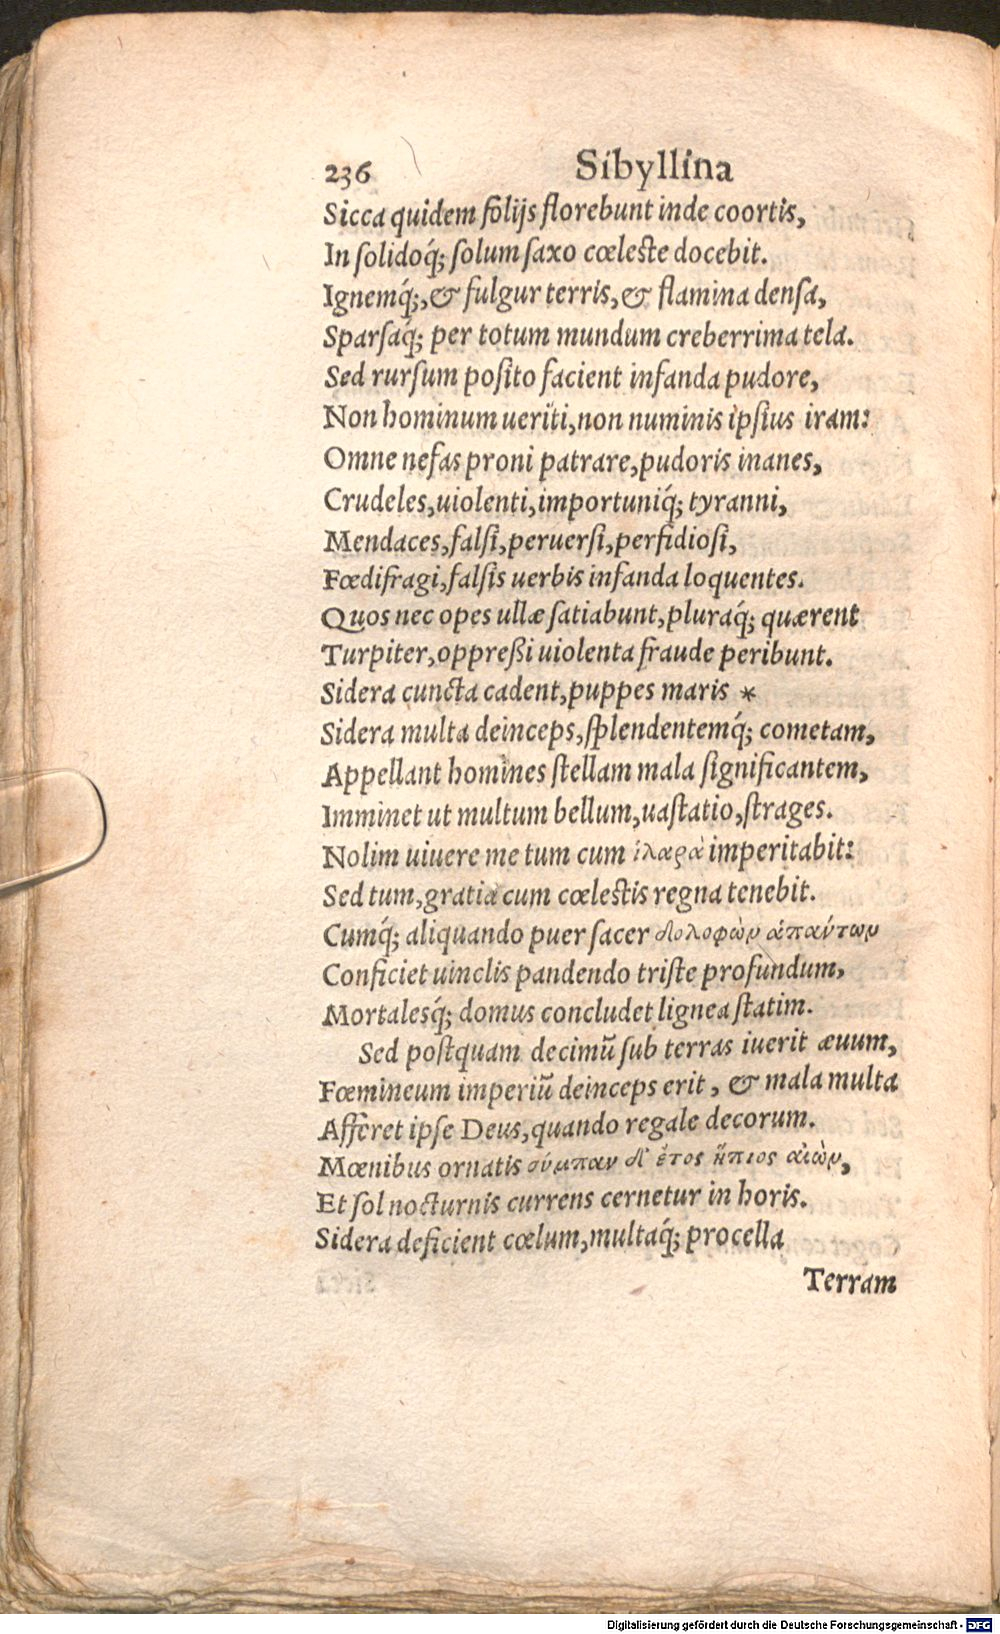 236 Sibyllina
Sicca quidem folijs florebunt inde coortis,
In solidoq́; solum saxo cœleste docebit.
Ignemq́;, & fulgur terris, & flamina densa,
Sparsaq́; per totum mundum creberrima tela.
Sed rursum posito facient infanda pudore,
Non hominum ueriti, non numinis ipsius iram:
Omne nefas proni patrare, pudoris inanes,
Crudeles, uiolenti, importuniq́; tyranni,
Mendaces, falsi, peruersi, perfidiosi,
Fœdifragi, falsis uerbis infanda loquentes.
Quos nec opes ullæ satiabunt, pluraq́; quærent
Turpiter, oppreßi uiolenta fraude peribunt.
Sidera cuncta cadent, puppes maris *
Sidera multa deinceps, splendentemq́; cometam,
Appellant homines stellam mala significantem,
Imminet ut multum bellum, uastatio, strages.
Nolim uiuere me tum cum ἱλαρὰ imperitabit:
Sed tum, gratia cum cœlestis regna tenebit.
Cumq́; aliquando puer sacer δολοφὼν ἁπαύτων
Conficiet uinclis pandendo triste profundum,
Mortalesq́; domus concludet lignea statim.
Sed postquam decimũ sub terras iuerit æuum,
Fœmineum imperiũ deinceps erit, & mala multa
Afferet ipse Deus, quando regale decorum.
Mœnibus ornatis σύμπαν δ' ἔτος ἤπιος αἰὼν,
Et sol nocturnis currens cernetur in horis.
Sidera deficient cœlum, multaq́; procella
Terram
Digitalisierung gefördert durch die Deutsche Forschungsgemeinschaft - DFG